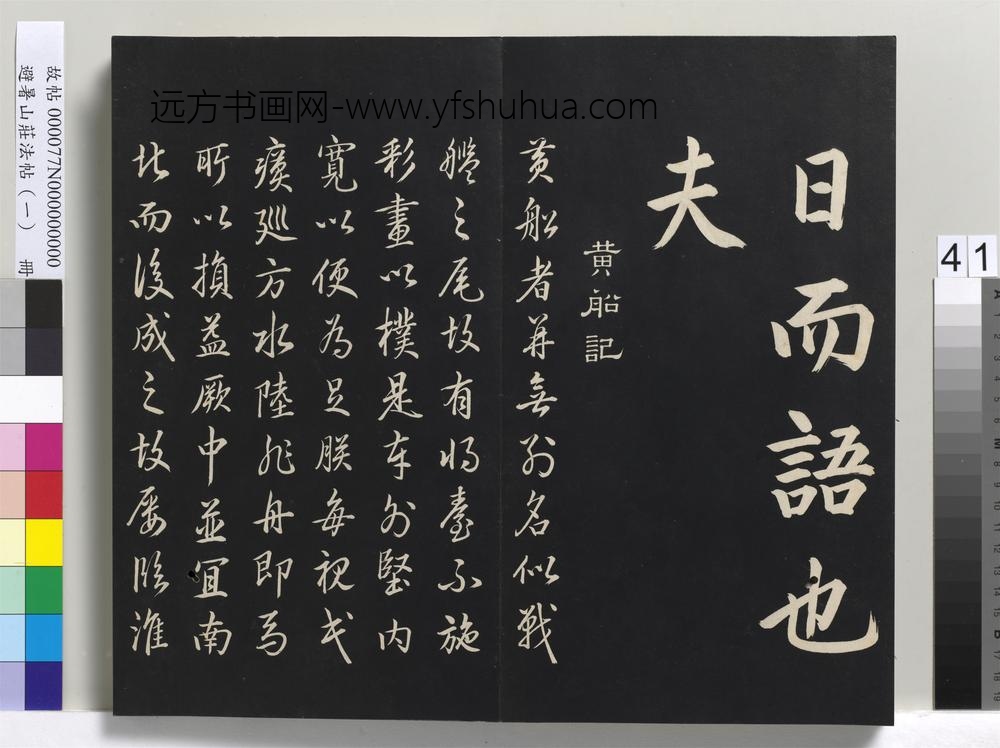 远方书画网-www.yfshuhua.com
日而語也
夫
黄船記
黄船者并無別名似戰
艦之尾故有將臺不施
彩畫以樸是本外堅内
寬以便為足朕每視民
瘼廵方水陸非舟即馬
所以損益厥中並冝南
北而後成之故屡臨淮
故帖 000077N000000000
避暑山莊法帖（一） 冊
41